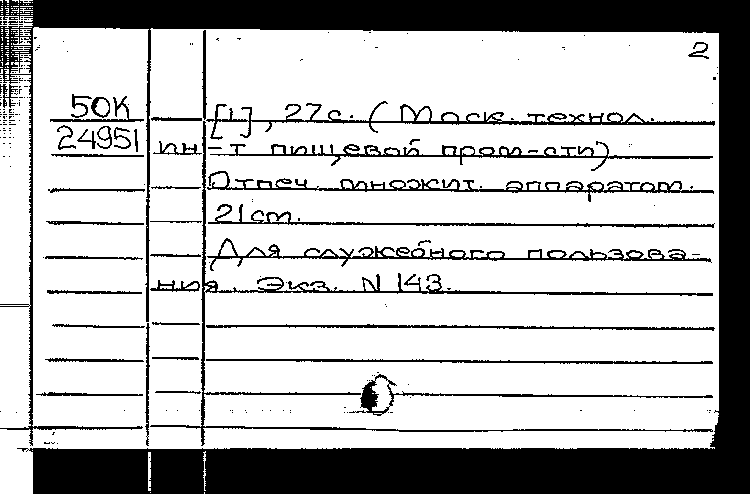 2
50К [1], 27с. (Моск. технол.
24951 ин-т пищевой пром-сти)
Отпеч. множит. аппаратом.
21 см.
Для служебного пользова-
ния. Экз. N 143.